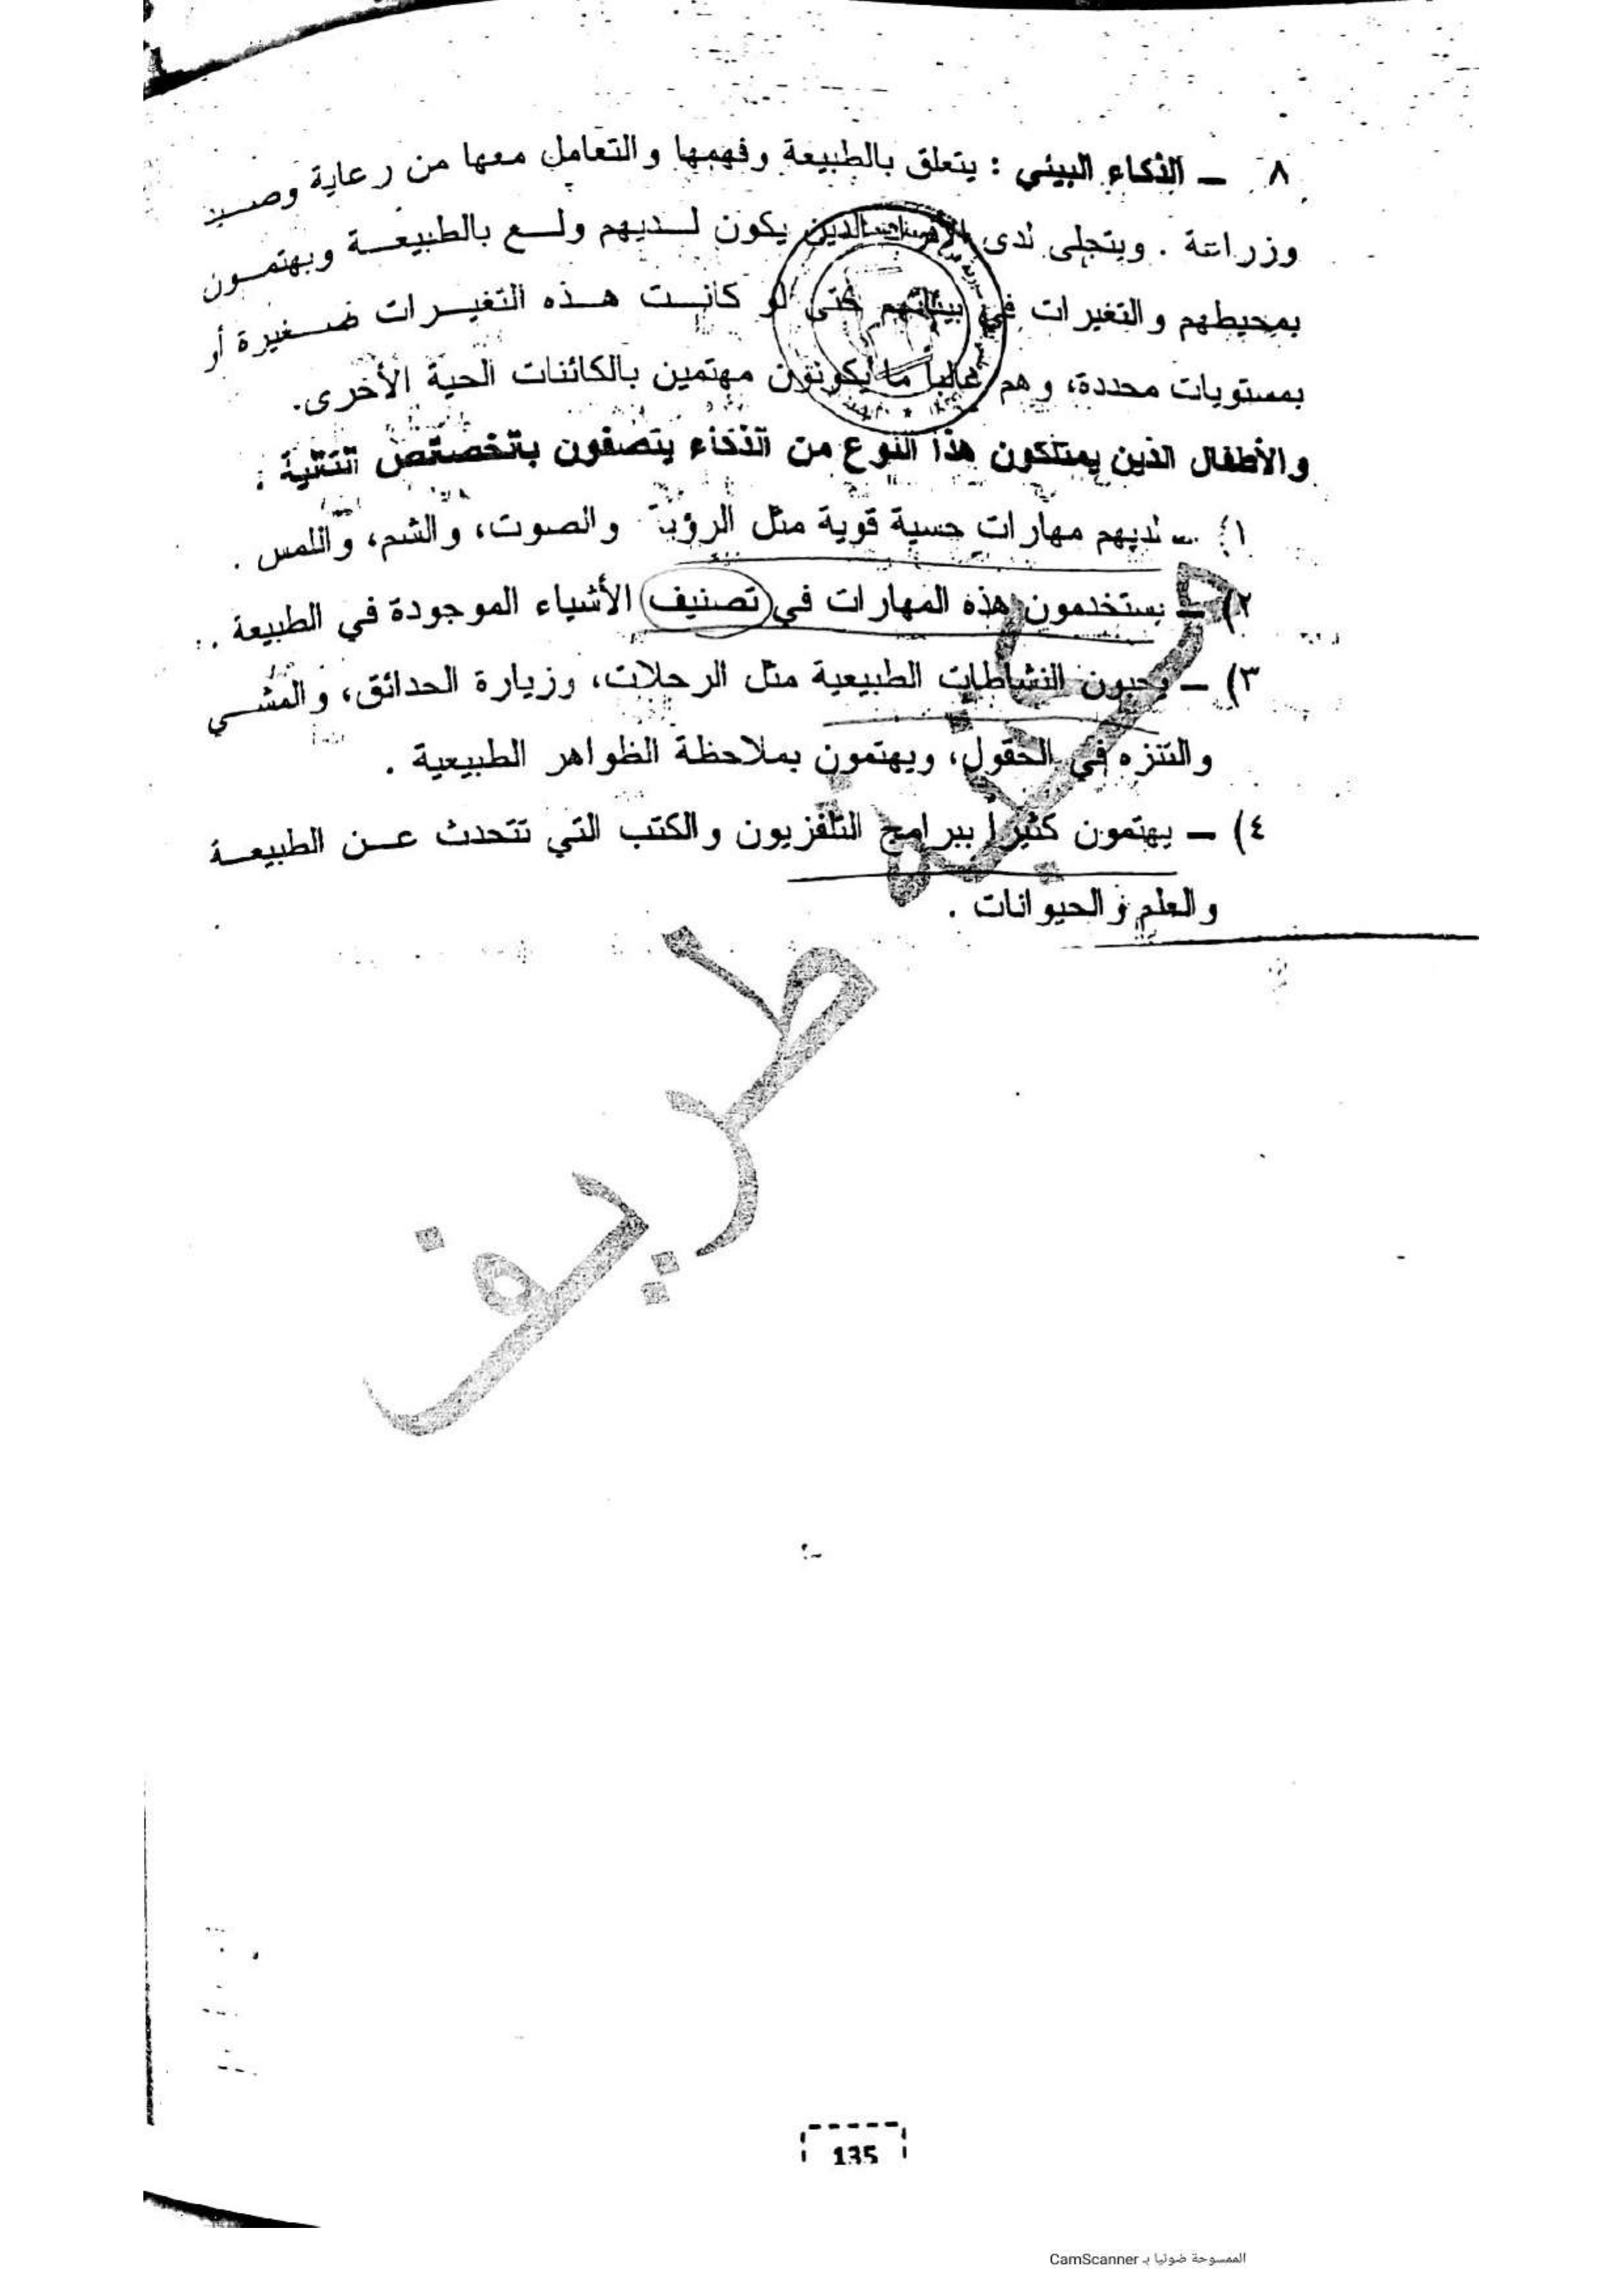 ٨ ـ الذكاء البيئي : يتعلق بالطبيعة وفهمها والتعامل معها من رعاية وصيد
وزراعة . ويتجلى لدى الأفراد الذين يكون لديهم ولع بالطبيعة ويهتمون
بمحيطهم والتغيرات في بيئاتهم حتى لو كانت هذه التغيرات صغيرة أو
بمستويات محددة، وهم غالباً ما يكونون مهتمين بالكائنات الحية الأخرى.
والأطفال الذين يمتلكون هذا النوع من الذكاء يتصفون بالخصائص التالية :
١) ـ لديهم مهارات حسية قوية مثل الرؤية والصوت، والشم، واللمس .
٢) ـ يستخدمون هذه المهارات في تصنيف الأشياء الموجودة في الطبيعة .
٣) ـ يحبون النشاطات الطبيعية مثل الرحلات، وزيارة الحدائق، والمشي
والتنزه في الحقول، ويهتمون بملاحظة الظواهر الطبيعية .
٤) ـ يهتمون كثيراً ببرامج التلفزيون والكتب التي تتحدث عن الطبيعة
والعلم والحيوانات .
طريف
135
الممسوحة ضوئيا بـ CamScanner